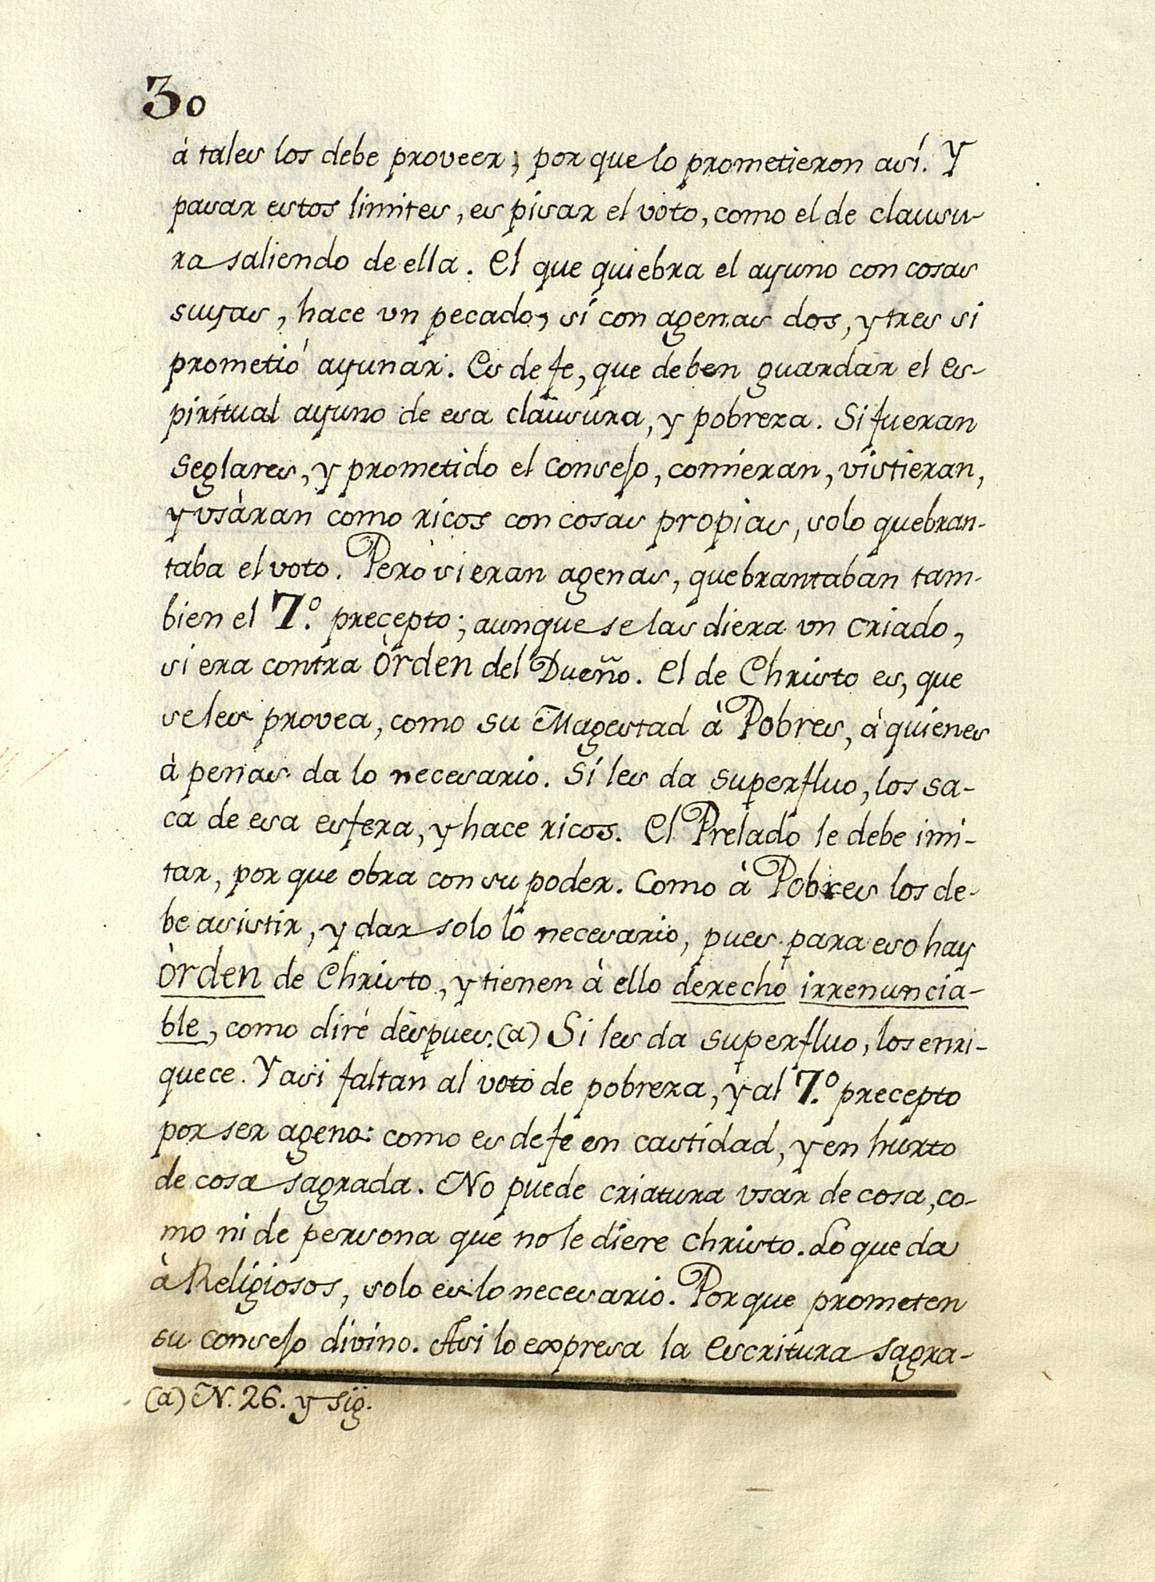 30
à tales los debe proveer; por que lo prometieron así. Y
pasar estos limites, es pisar el voto, como el de clausu-
ra saliendo de ella. El que quiebra el ayuno con cosas
suyas, hace un pecado, sí con agenas dos, y tres si
prometió ayunar. Es de fe, que deben guardar el es-
piritual ayuno de esa clausura, y pobreza. Si fueran
Seglares, y prometido el consejo, comieran, vistieran,
y usàran como ricos con cosas propias, solo quebran-
taba el voto. Pero si eran agenas, quebrantaban tam-
bien el 7.º precepto; aunque se las diera un criado,
si era contra òrden del Dueño. El de Christo es, que
se les provea, como su Magestad à Pobres, à quienes
à penas da lo necesario. Sí les da superfluo, los sa-
ca de esa esfera, y hace ricos. El Prelado le debe imi-
tar, por que obra con su poder. Como à Pobres los de-
be asistir, y dar solo lo necesario, pues para eso hay
òrden de Christo, y tienen à ello derecho irrenuncia-
ble, como diré despues.(a) Si les da superfluo, los enri-
quece. Y asi faltan al voto de pobreza, y al 7.º precepto
por ser ageno: como es de fe en castidad, y en hurto
de cosa sagrada. No puede criatura usar de cosa, co-
mo ni de persona que no le diere Christo. Lo que da
à Religiosos, solo es lo necesario. Por que prometen
su consejo divino. Asi lo expresa la Escritura sagra-
(a) N. 26. y sig.